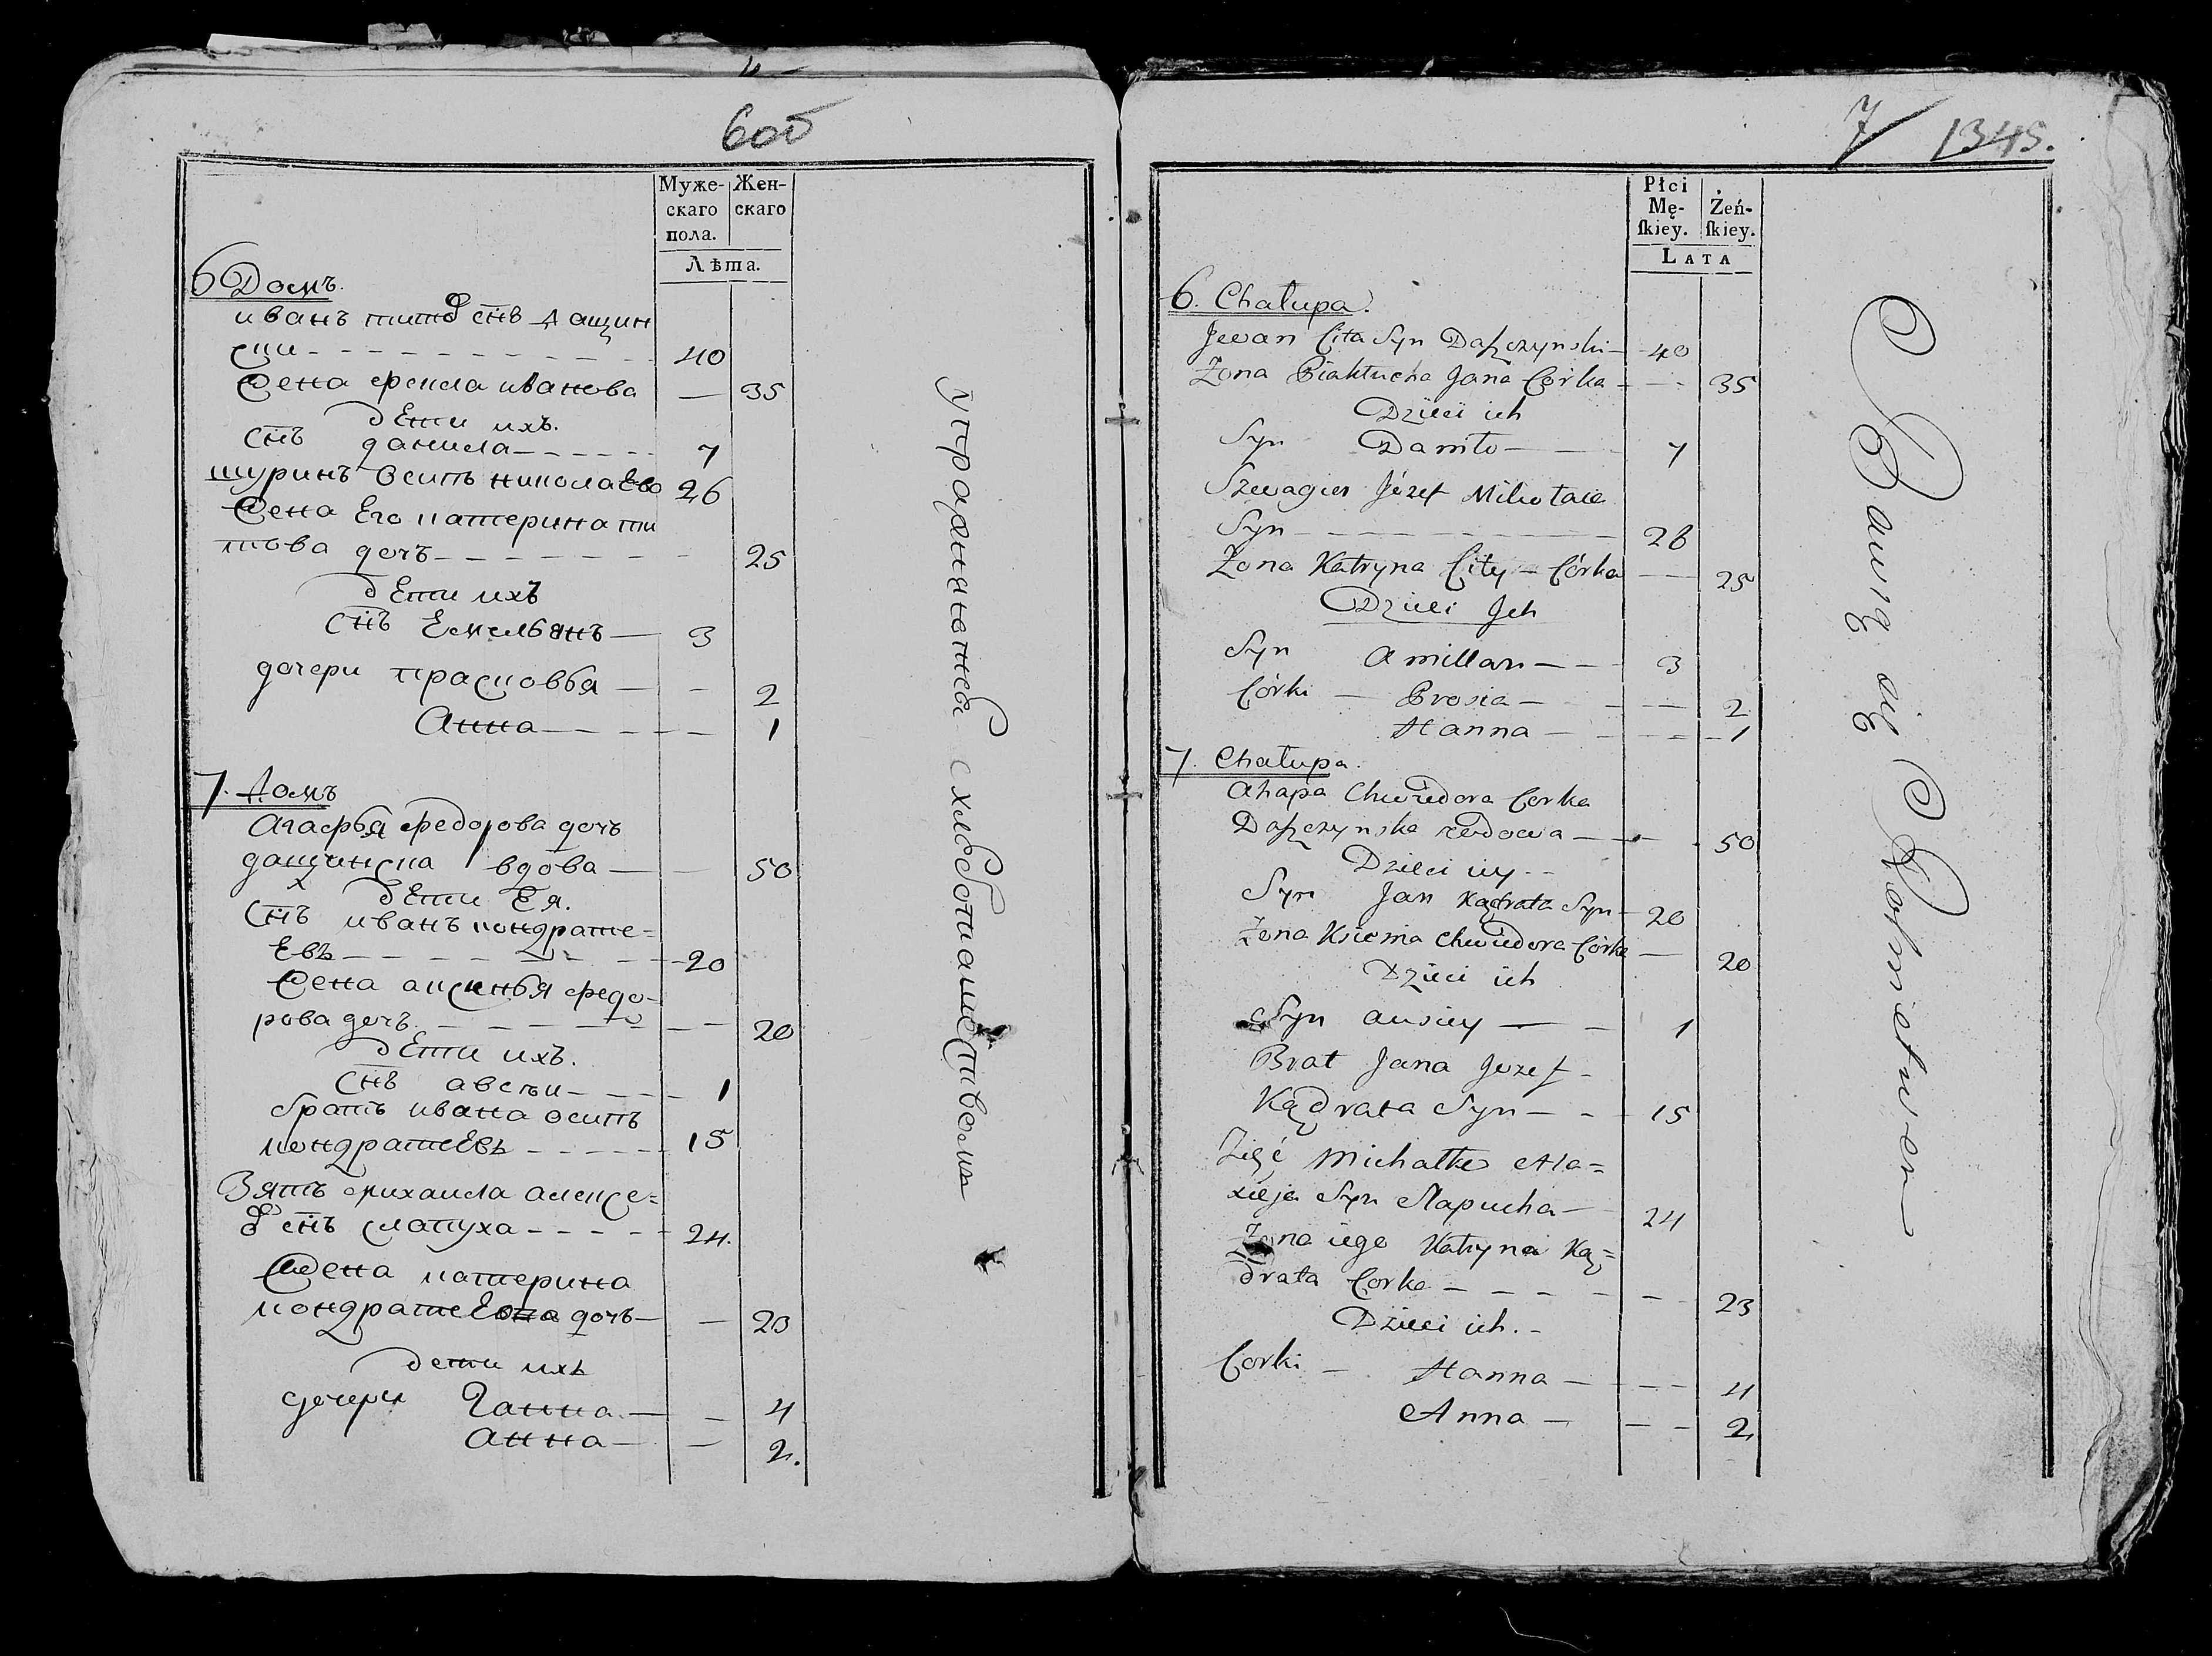 6об
Муже-
скаго
пола.
Жен-
скаго
Лѣта.
6 Домъ.
иванъ титов снъ дащин
ски 40
Жена фекла иванова — 35
дети ихъ.
Снъ данила 7
шуринъ осипъ николаево 26
Жена Его катерина ти
това дочь 25
дети ихъ
Снъ Емельянъ — 3
дочери прасковья — 2
Анна 1
7. Домъ
Агафья федорова дочь
дащинска вдова — 50
дети Ея.
Снъ иванъ кондрате=
Евъ 20
Жена аксинья федо-
рова дочь 20
дети ихъ.
Снъ авсѣи 1
братъ ивана осипъ
кондратеЕвъ 15
Зять михаила алексе=
в снъ слапуха 24.
Жена катерина
кондратеЕвна дочь — 23
дети ихъ
дочери Ганна — 4
анна — 2.
упражнены схлебопашеством
7 1345.
Płci
Mę-
ſkiey.
Żeń-
ſkiey.
LATA
6. Chałupa.
Jwan Cita Syn Daszczynski 40
Żona Jana Corka 35
Dzieci ich
Syn Daniło 7
Szwagier Józef Mikołaie
Syn 26
Żona Katryna City Córka 25
Dzieci Jch
Syn Amillan 3
Córki — Prosia 2
Hanna 1
7. Chałupa.
Ahapa Chwiedora Corka
Daszczynska wdowa 50
Dzieci iey
Syn Jan Kądrata Syn 20
Żona Ksienia Chwiedora Córka 20
Dzieci ich
Syn ausiey — 1
Brat Jana Jozef
Kądrata Syn 15
Zięć Michałko Ale=
xieja Syn Słapucha 24
Żona iego Katryna Ką=
drata Corka 23
Dzieci ich.
Corki — Hanna 4
Anna 2
Bawią się Rolnictwem